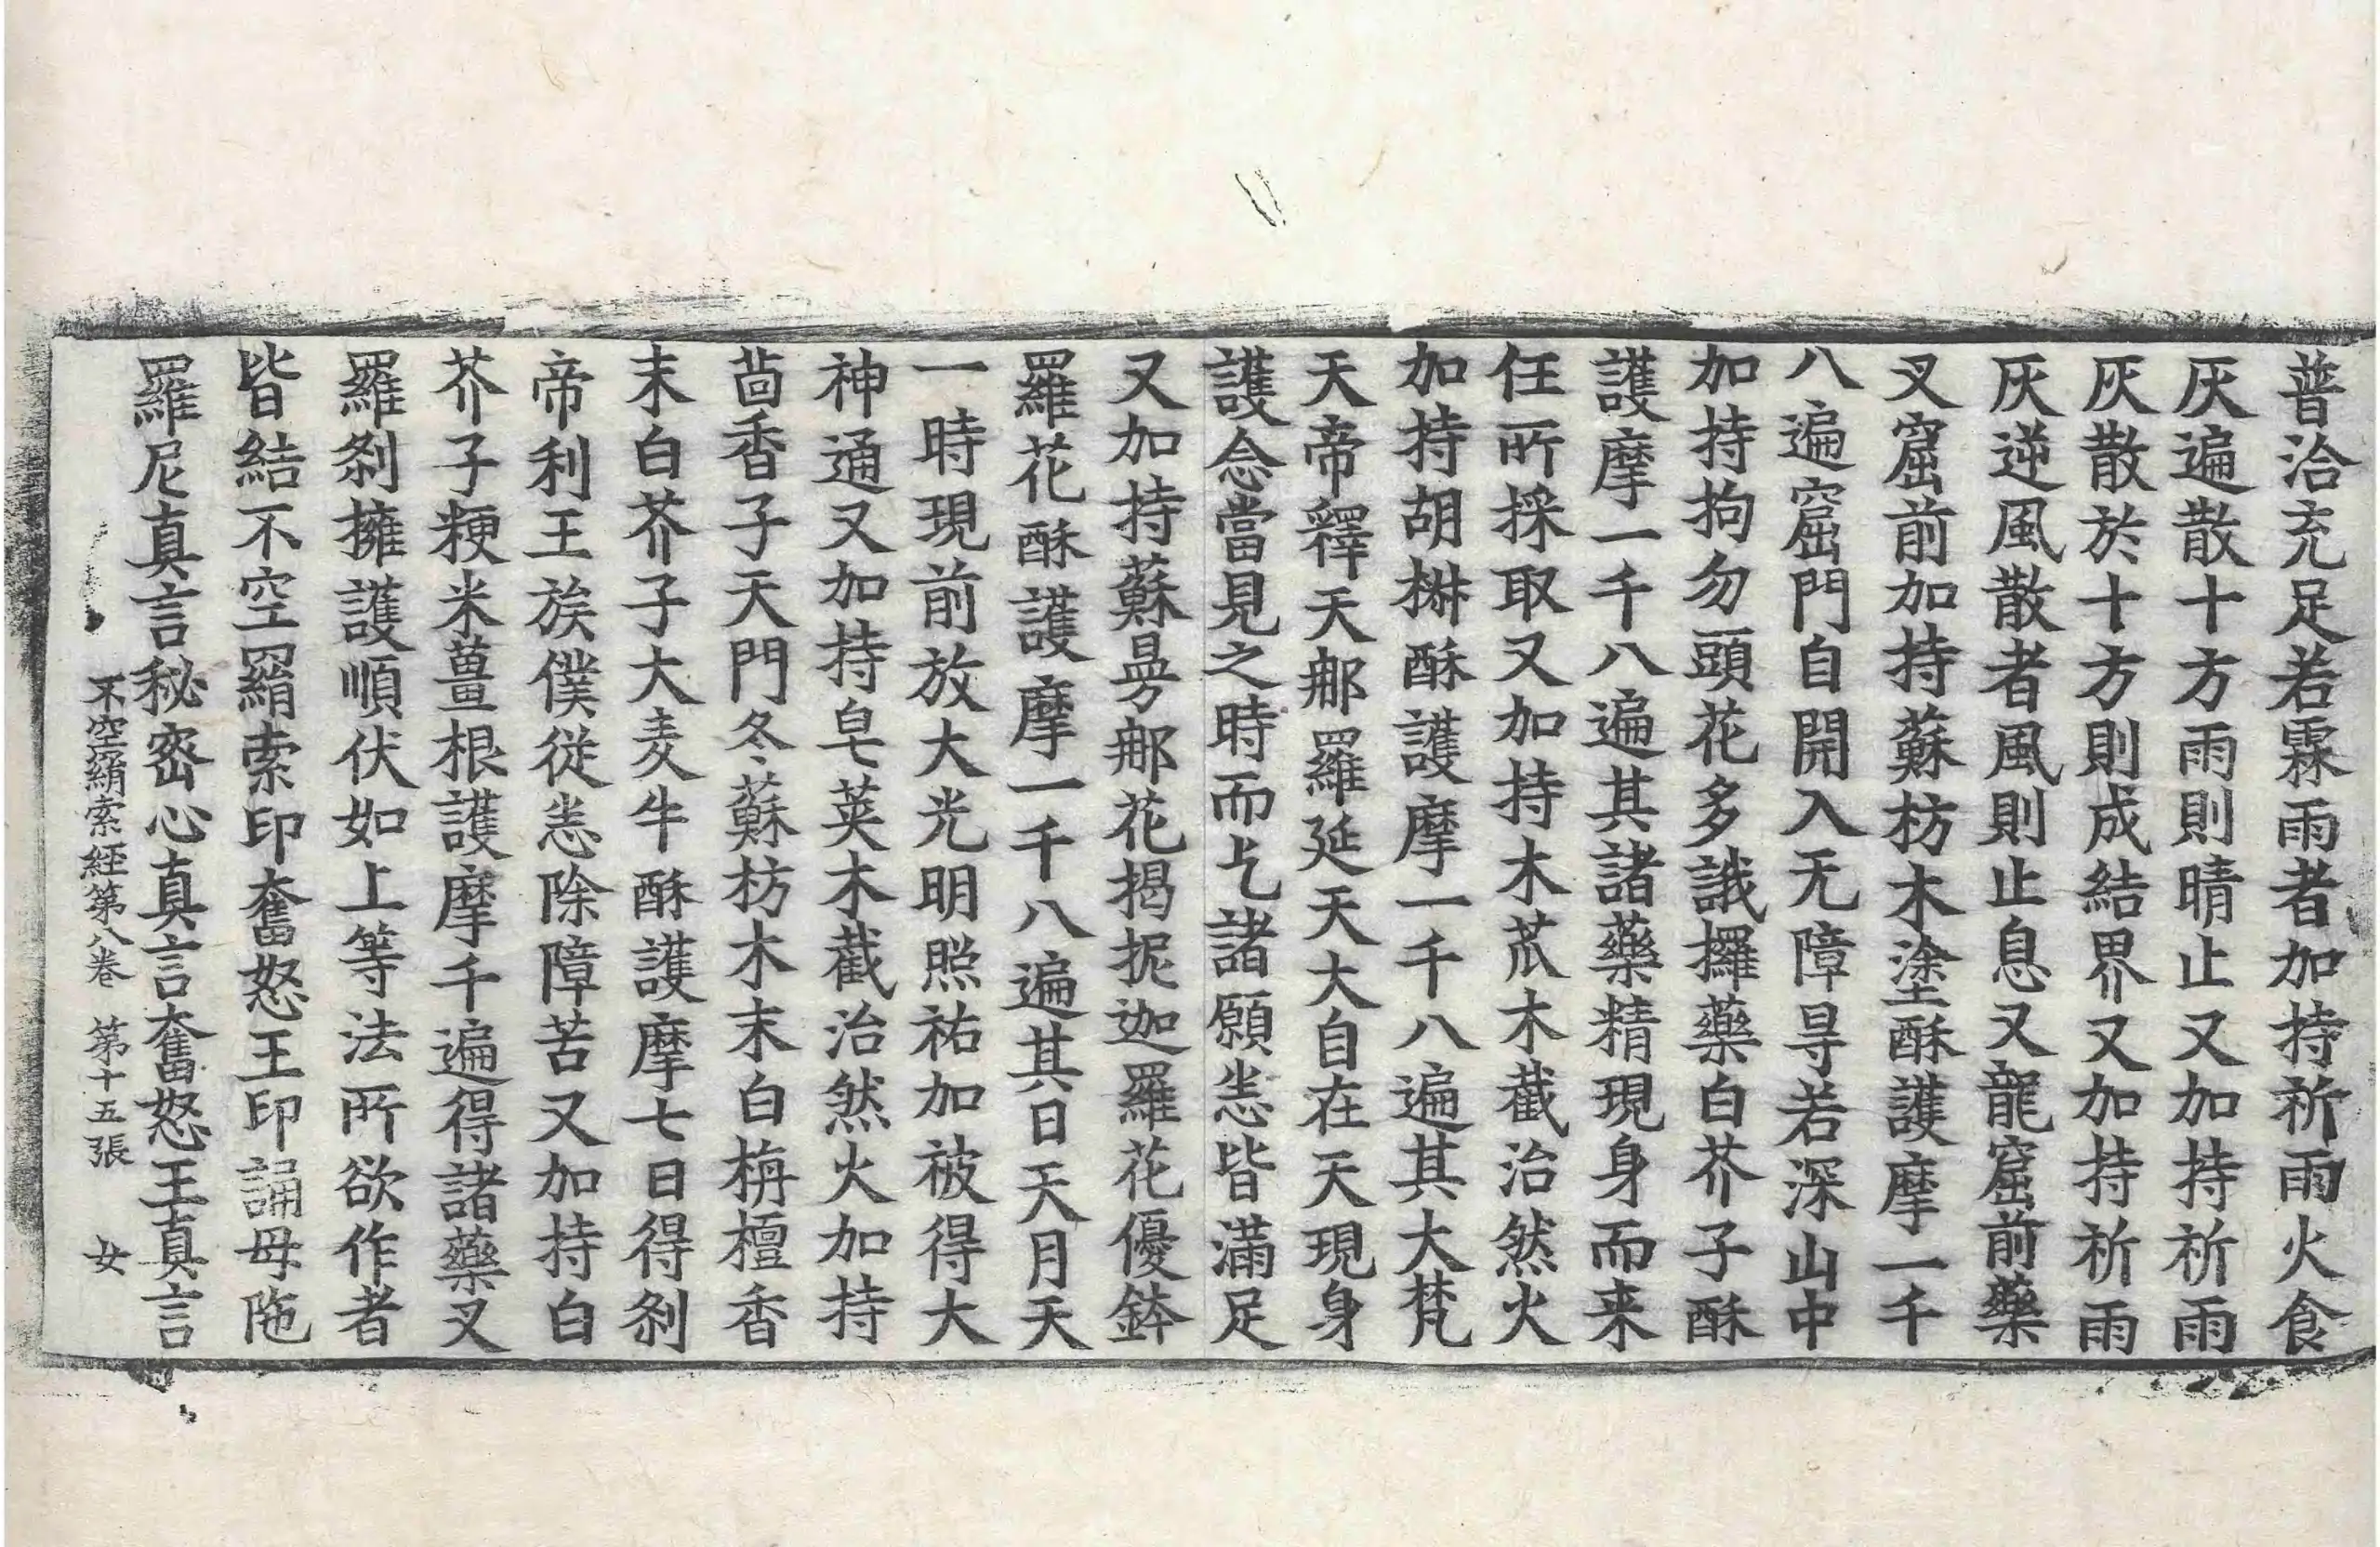 普洽充足若霖雨者加持祈雨火食
灰遍散十方雨則晴止又加持祈雨
灰散於十方則成結界又加持祈雨
灰逆風散者風則止息又龍窟前藥
叉窟前加持蘇枋木塗酥護摩一千
八遍窟門自開入无障㝵若深山中
加持拘勿頭花多誐攞藥白芥子酥
護摩一千八遍其諸藥精現身而来
任所採取又加持木苽木截治然火
加持胡椒酥護摩一千八遍其大梵
天帝釋天那羅延天大自在天現身
護念當見之時而乞諸願恙皆滿足
又加持蘇曼那花揭抳迦羅花優鉢
羅花酥護摩一千八遍其日天月天
一時現前放大光明照祐加被得大
神通又加持皂莢木截治然火加持
茴香子天門冬蘇枋木末白栴檀香
末白芥子大麦牛酥護摩七日得刹
帝利王族僕從恙除障苦又加持白
芥子粳米薑根護摩千遍得諸藥叉
羅刹擁護順伏如上等法所欲作者
皆結不空羂索印奮怒王印誦母陁
羅尼真言秘密心真言奮怒王真言
不空羂索經第八卷 第十五張 女